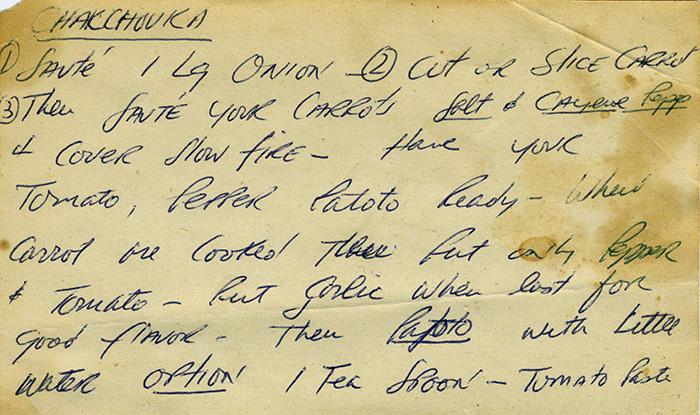 CHAKCHOUKA
① SAUTé 1 Lg ONION - ② CUT or SLICE CARROT
③ Then SAUTé YOUR CARROTS Salt & CAyene Pepp
& COVER Slow fire - Have your
Tomato, PePPER Patoto Ready - When
Carrot are Cooked Then Put only Pepper
& Tomato - Put Garlic when last for
good flavor - Then Patoto with little
water OPTION 1 Tea Spoon - Tomato Paste